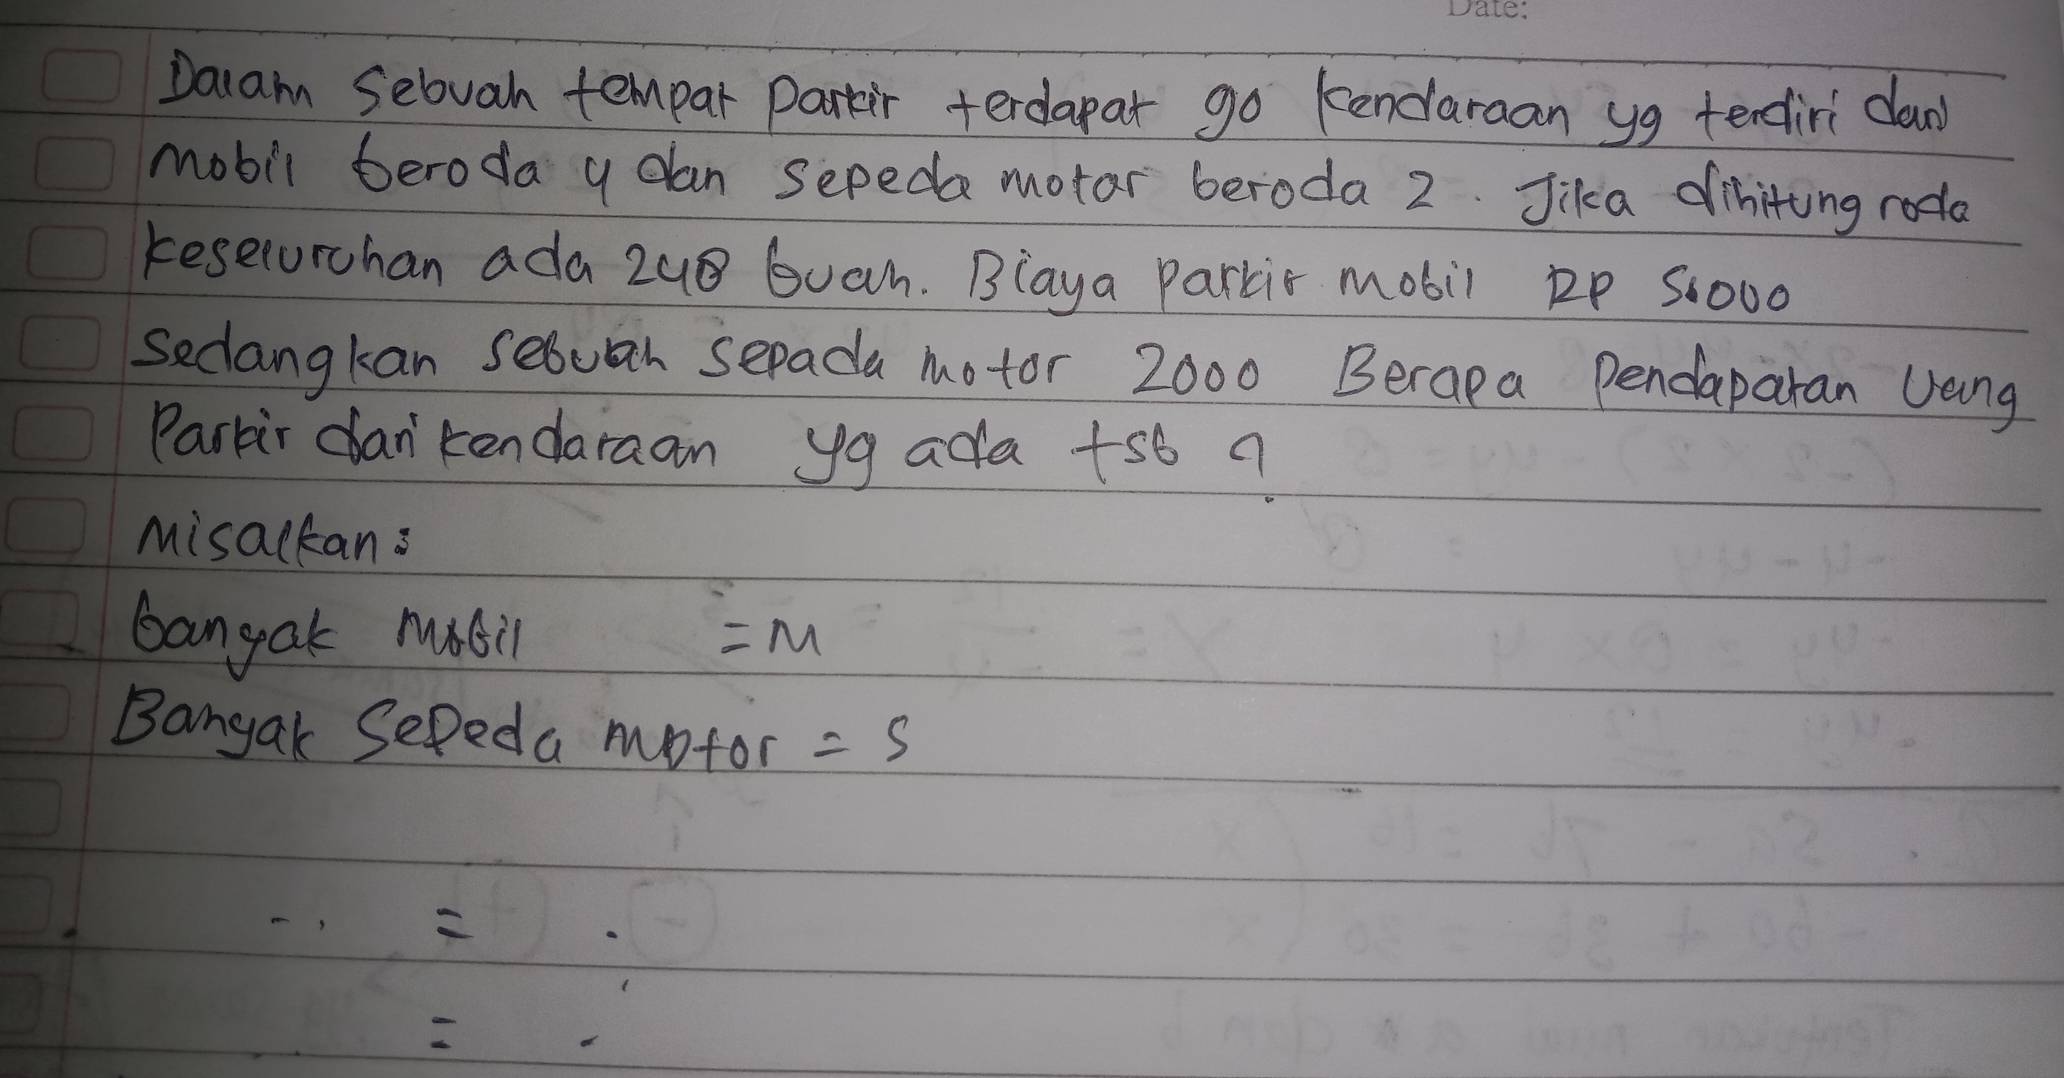 Date:
Dalam sebuah tempat parkir terdapat 90 kendaraan yg terdiri dari
mobil beroda 4 dan sepeda motor beroda 2. Jika dihitung roda
keseluruhan ada 248 buah. Biaya parkir mobil RP 5.000
sedangkan sebuah sepada motor 2000 Berapa pendapatan uang
Parkir dari kendaraan yg ada tsb ?
Misalkan :
banyak mobil = M
Banyak sepeda motor = S
.. = .
= .